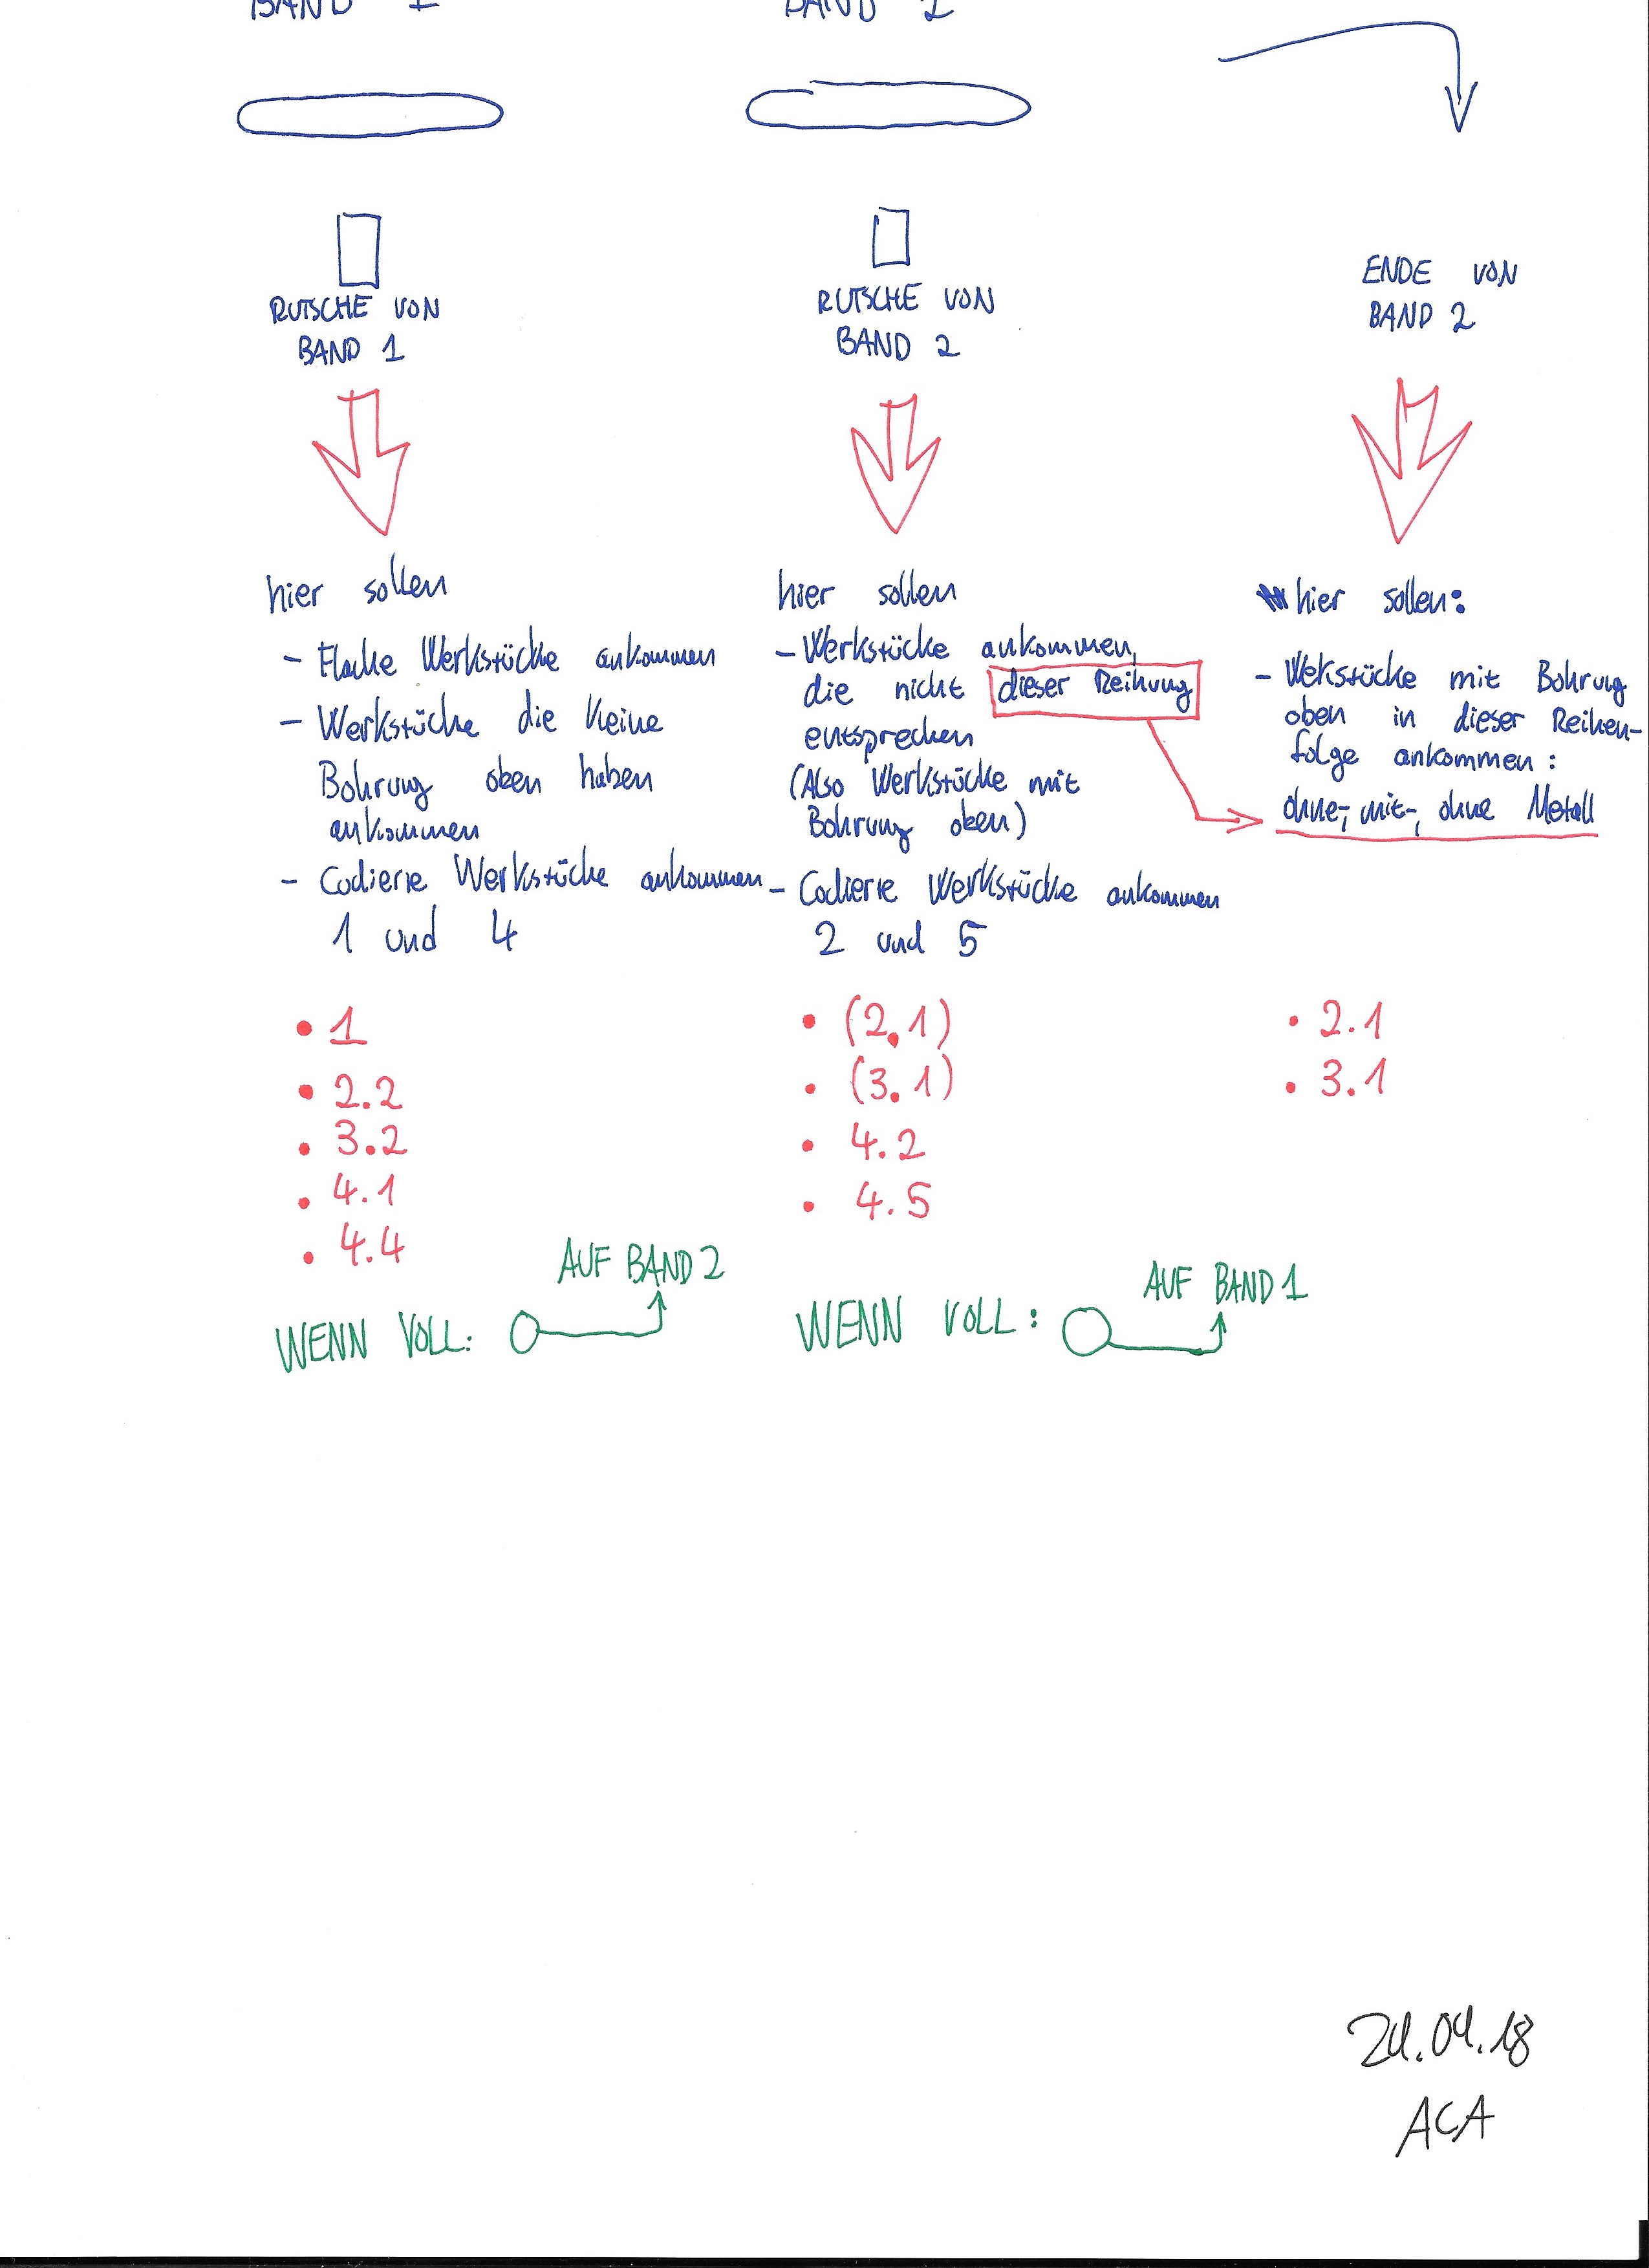 BAND 1
BAND 2
RUTSCHE VON
BAND 1
RUTSCHE VON
BAND 2
ENDE VON
BAND 2
hier sollen
- Flache Werkstücke ankommen
- Werkstücke die keine
Bohrung oben haben
ankommen
- Codierte Werkstücke ankommen
1 und 4
• 1
• 2.2
• 3.2
• 4.1
• 4.4
WENN VOLL:
AUF BAND 2
hier sollen
- Werkstücke ankommen,
die nicht dieser Reihung
entsprechen
(Also Werkstücke mit
Bohrung oben)
- Codierte Werkstücke ankommen
2 und 5
• (2.1)
• (3.1)
• 4.2
• 4.5
WENN VOLL:
AUF BAND 1
hier sollen:
- Wekstücke mit Bohrung
oben in dieser Reihen-
folge ankommen:
ohne-, mit-, ohne Metall
• 2.1
• 3.1
24.04.18
ACA